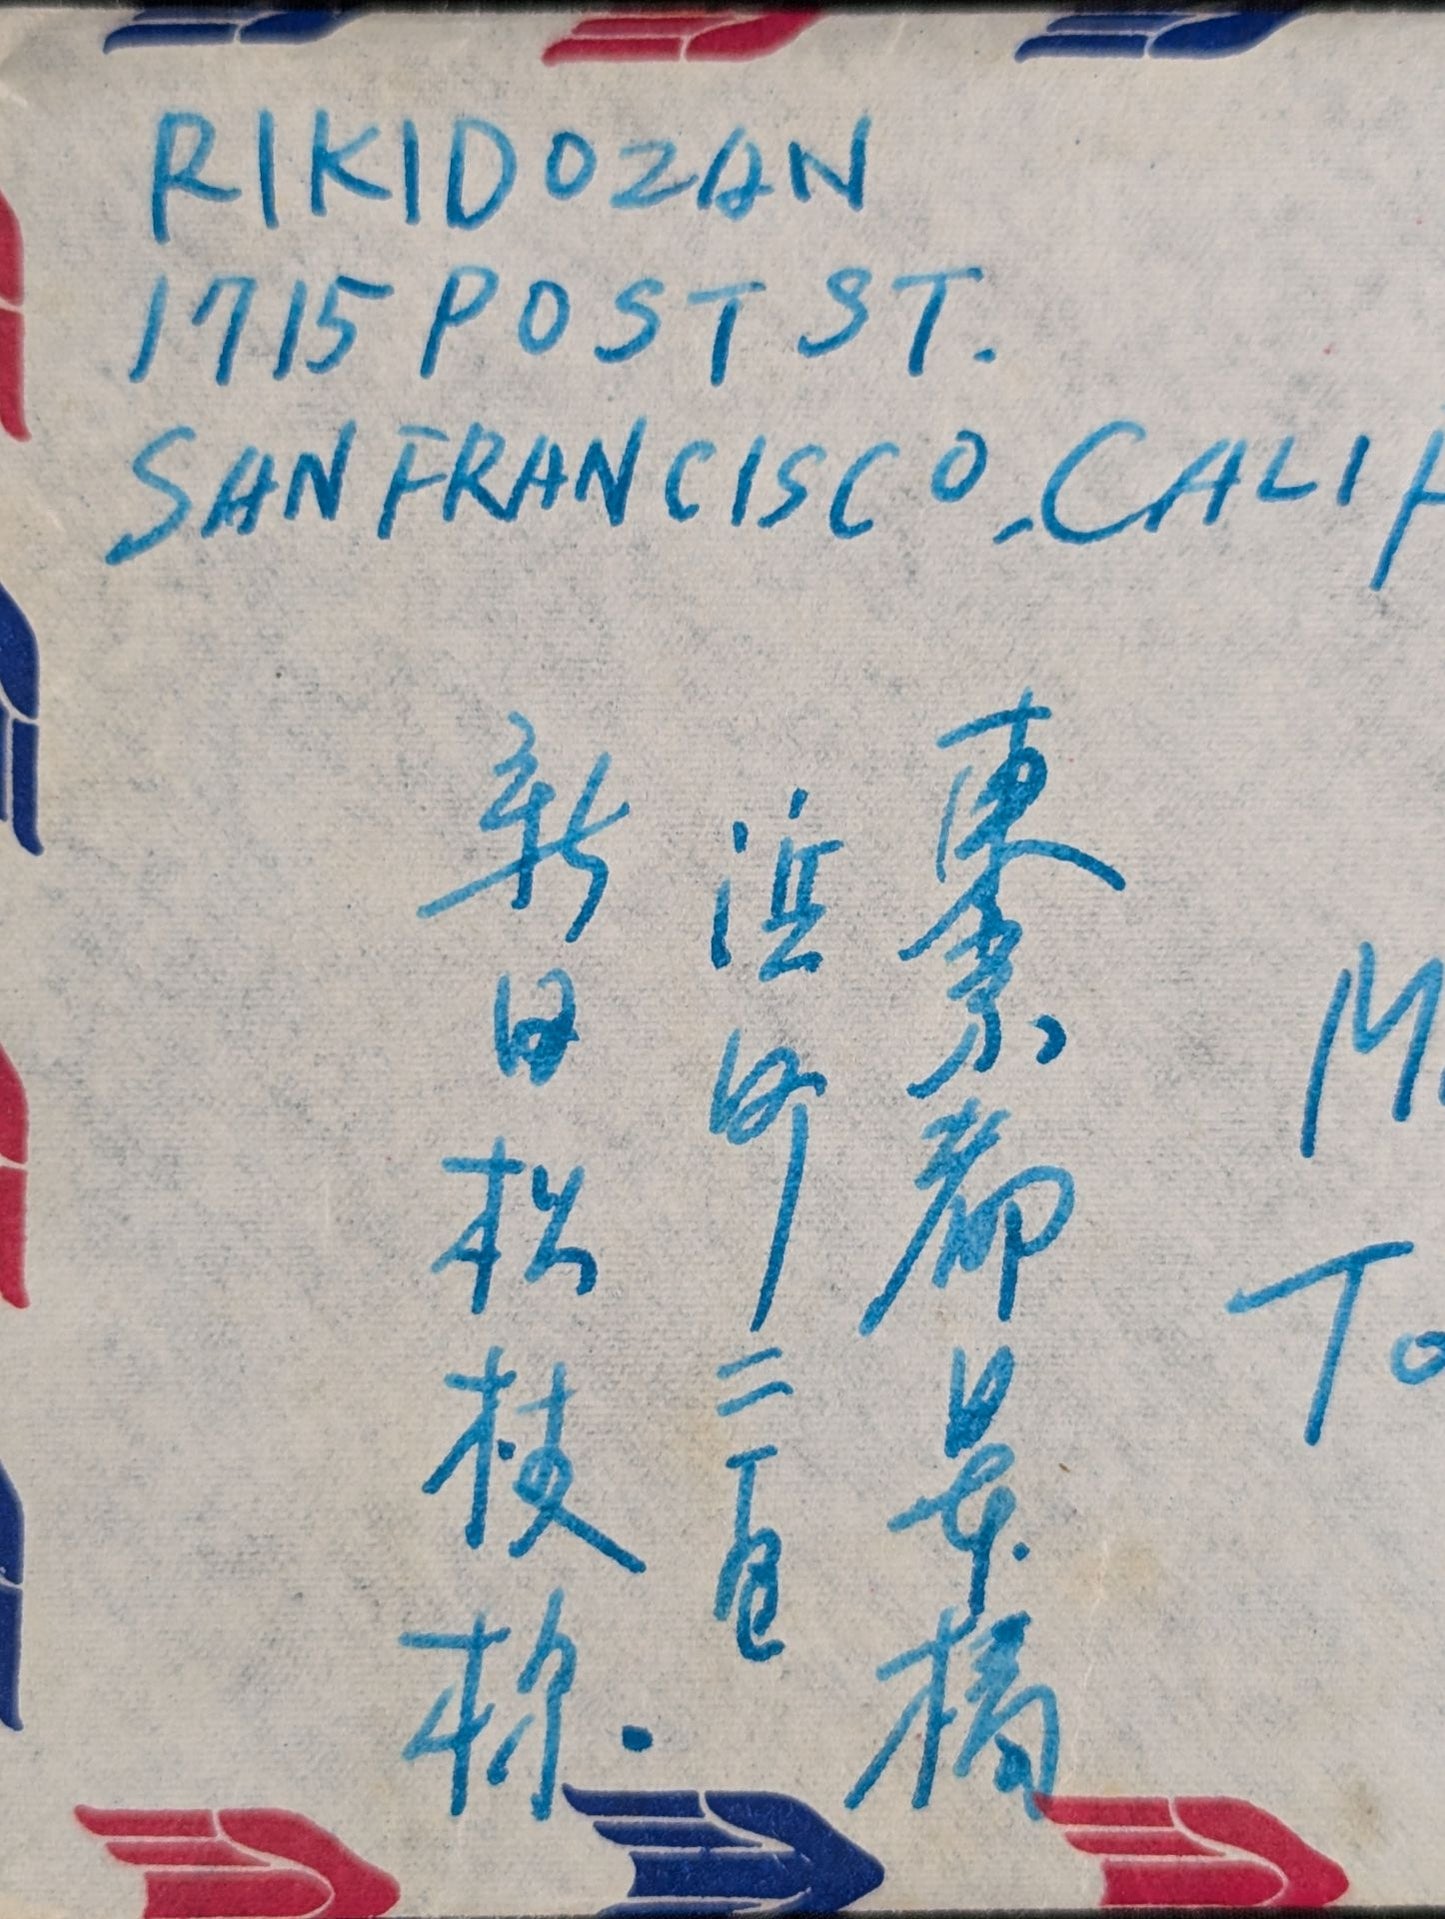 RIKIDOZAN
1715 POST ST.
SAN FRANCISCO, CALIF
東京都日本橋
浜町二ノ
新田松枝様.
M
To